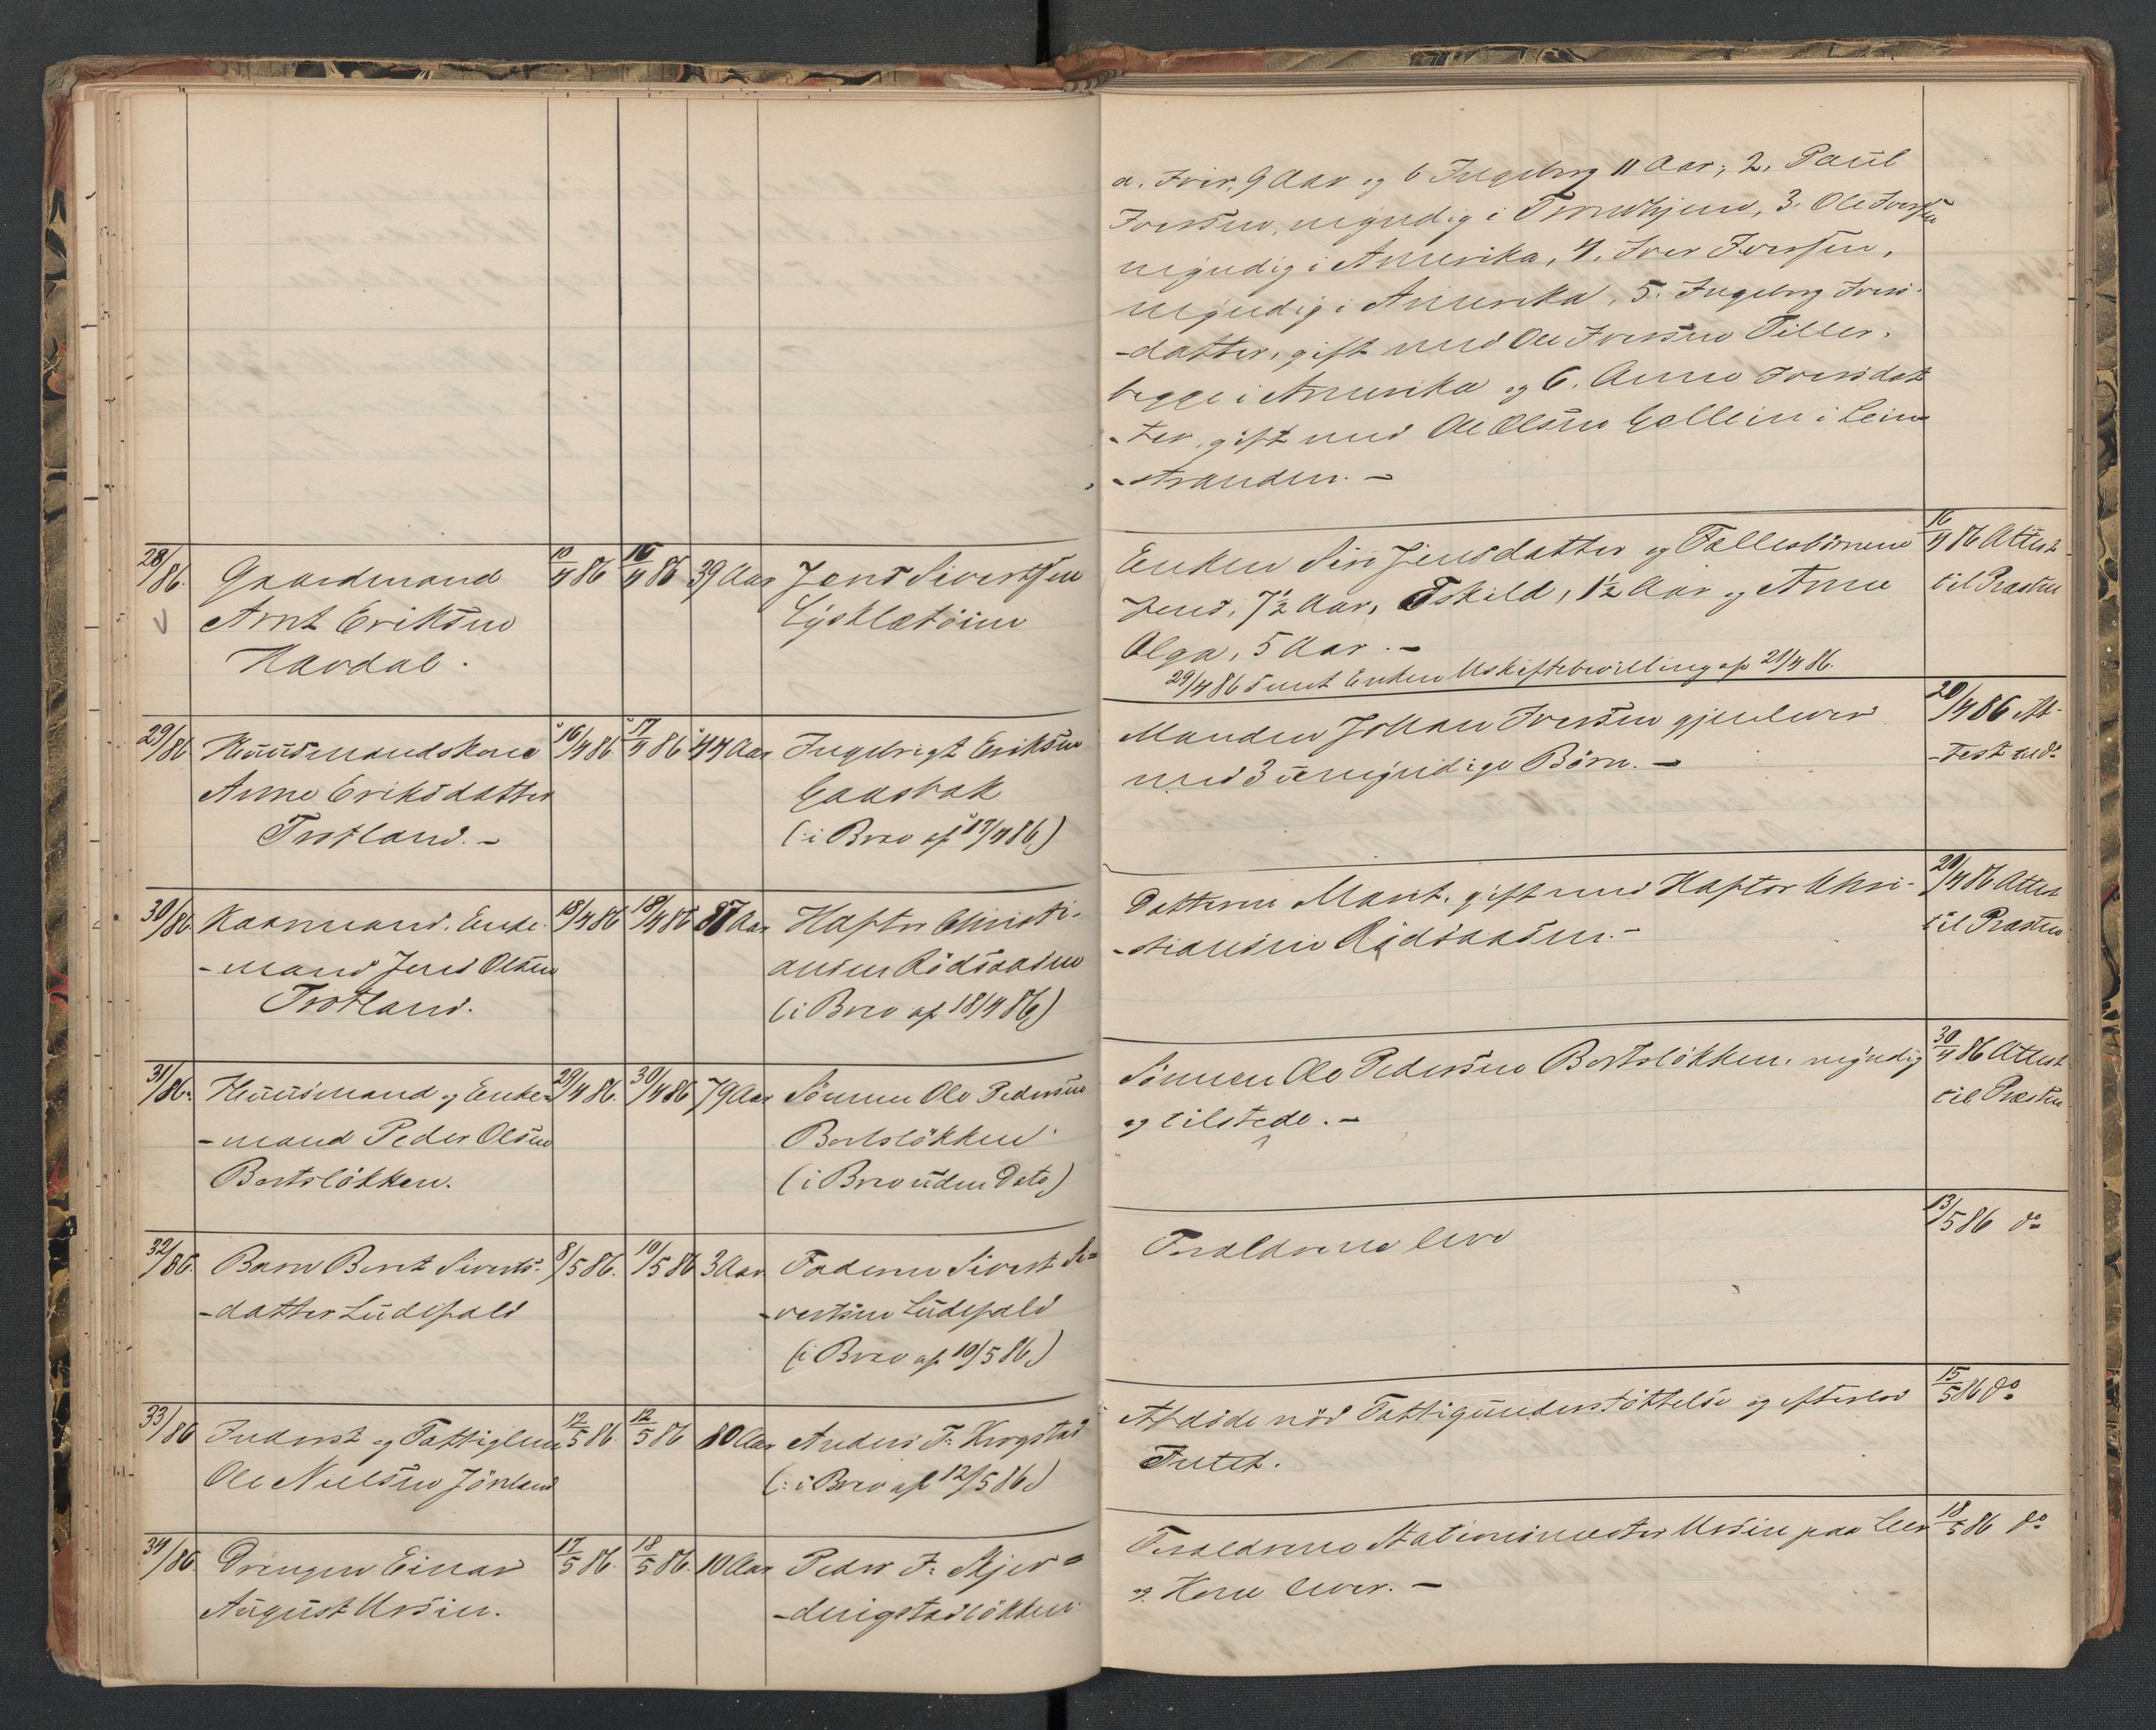 a. Iver, 9 Aar og b Ingeborg 11 Aar; 2. Paul
Iversen, myndig i Trondhjem, 3. Ole Iversen
myndig i Amerika, 4. Iver Iversen,
myndig i Amerika, 5. Ingeborg Ivers-
-datter, gift med Ole Iversen Tiller,
begge i Amerika og 6. Anne Iversdat
-ter, gift med Ole Olsen i Lein
-stranden. -
28/86. Gaardmand
Arnt Eriksen
Havdal.
10/4 86 16/4 86 39 Aar
Jens Sivertsen
Lysklætøien
Enken Siri Jensdatter og Fællesbørnene
Jens, 7½ Aar, Eskild, 1½ Aar og Anne
Olga, 5 Aar. -
29/4 86 sendt Enken Uskiftebevilling af 21/4 86.
16/4 86 Attest
til Præsten
29/86 Huusmandskone
Anne Eriksdatter
Trotland. -
16/4 86 17/4 86 44 Aar
Ingebrigt Eriksen
Gaasbak
(: i Brev af 17/4 86)
Manden Johan Iversen gjenlever
med 3 umyndige Børn. -
20/4 86 At-
-test
30/86 Kaarmand, Enke-
-mand Jens Olsen
Trotland.
18/4 86 18/4 86 87 Aar
Haftor Christi-
ansen Rødsaasen
(i Brev af 18/4 86)
Datteren Marit, gift med Haftor Chri-
-stiansen Rødsaasen. -
20/4 86 Attest
til Præsten
31/86. Huusmand og Enke-
-mand Peder Olsen
Bortsløkken.
29/4 86. 30/4 86 79 Aar
Sønnen Ole Pedersen
Bortsløkken
(i Brev uden Dato)
Sønnen Ole Pedersen Bortsløkken, myndig
og tilstede. -
30/4 86 Attest
til Præsten
32/86. Barn Berit Siverts-
-datter Ludefald
8/5 86. 10/5 86 3 Aar
Faderen Sivert Si=
-vertsen Ludefald
(i Brev af 10/5 86)
Forældrene leve
13/5 86 do
33/86 Inderst og Fattiglem
Ole Nielsen
12/5 86. 12/5 86 80 Aar
Anders F. Krogstad
(: i Brev af 12/5 86)
Afdøde nød Fattigunderstøttelse og efterlod
Intet.
15/5 86 do
34/86. Drengen Einar
August Ursin.
17/5 86. 18/5 86. 10 Aar
Peder F. Skjer=
-dingstadløkken
Forældrene Stationsmester Ursin paa Leer
og Kone lever. -
18/5 86 do